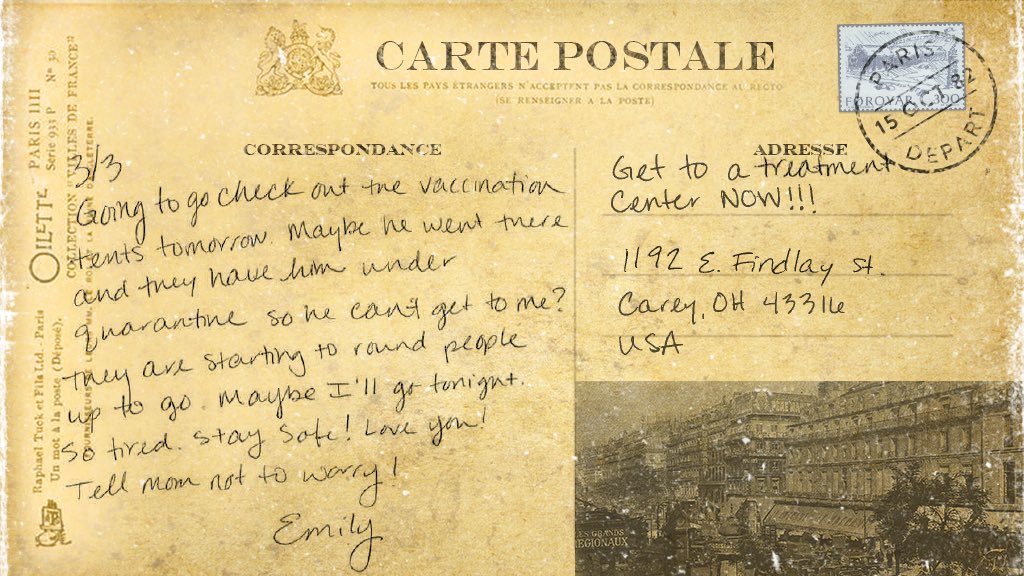 CARTE POSTALE
TOUS LES PAYS ÉTRANGERS N'ACCEPTENT PAS LA CORRESPONDANCE AU RECTO
(SE RENSEIGNER A LA POSTE)
FOROYAR 300
PARIS
15 OCT 82
DEPART
CORRESPONDANCE
3/3
Going to go check out the vaccination
tents tomorrow. Maybe he went there
and they have him under
quarantine so he can't get to me?
They are starting to round people
up to go. Maybe I'll go tonight.
So tired. Stay safe! Love you!
Tell mom not to worry!
Emily
ADRESSE
Get to a treatment
center NOW!!!
1192 E. Findlay St.
Carey, OH 43316
USA
PARIS IIII
Série 933 P Nº 30
COLLECTION "VILLES DE FRANCE"
OILETTE
Raphael Tuck et Fils Ltd. Paris
Un mot à la poste (Déposé).
LES GRANDS
REGIONAUX